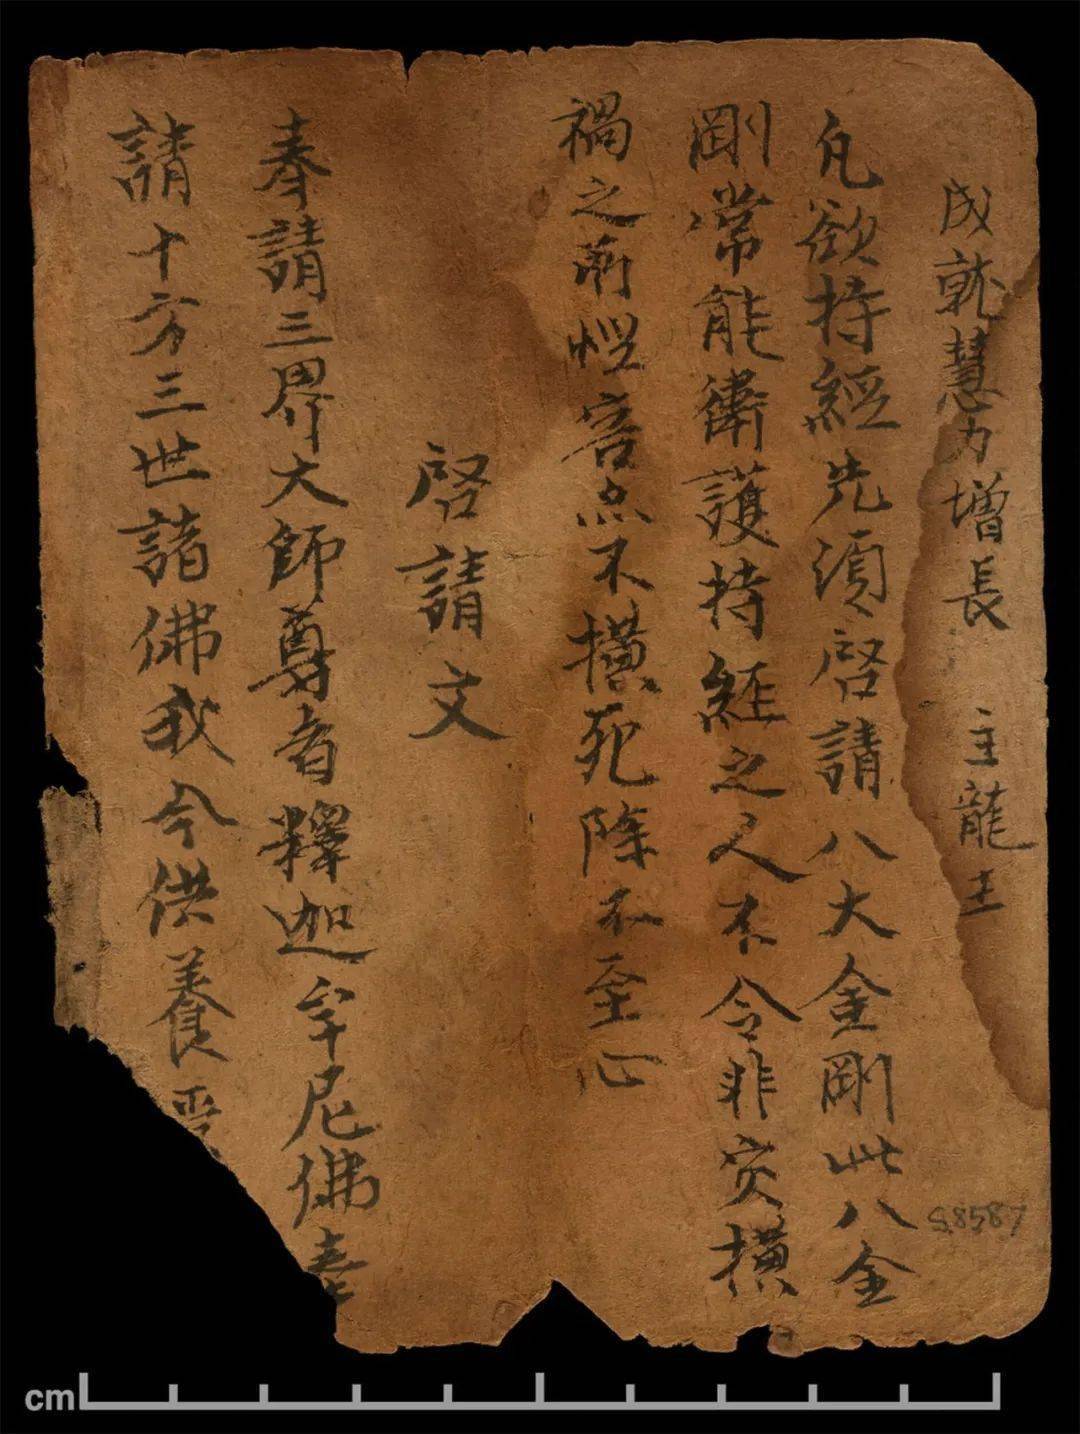 成就慧力增長 主龍王
凡欲持經先須啓請八大金剛此八金
剛常能衛護持經之人不令非灾橫
禍之所惱害亦不橫死除不至心
啓請文
奉請三界大師尊者釋迦牟尼佛奉
請十方三世諸佛我今供養受
S.8587
cm